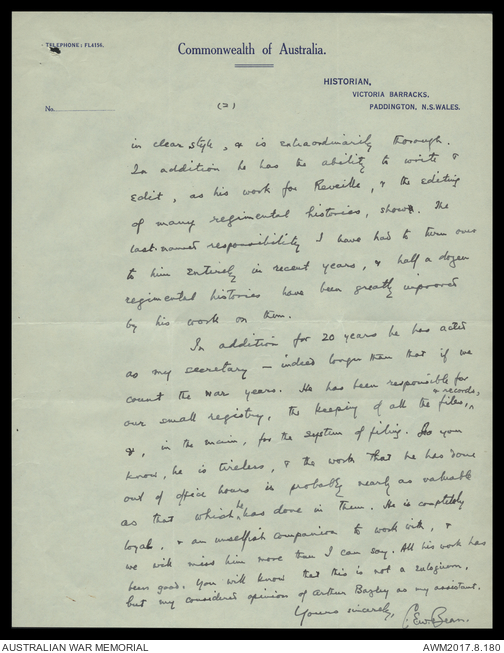 TELEPHONE: FL4156.
Commonwealth of Australia.
HISTORIAN,
VICTORIA BARRACKS,
PADDINGTON, N.S.WALES.
No.
(2)
in clear style, & is extraordinarily thorough.
In addition he has the ability to write &
edit, as his work for Reveille, & the editing
of many regimental histories, shows. The
last-named responsibility I have had to turn over
to him entirely in recent years, & half a dozen
regimental histories have been greatly improved
by his work on them.
In addition for 20 years he has acted
as my secretary – indeed longer than that if we
count the war years. He has been responsible for
our small registry, the keeping of all the files, & records,
&, in the main, for the system of filing. As you
know, he is tireless, & the work that he has done
out of office hours is probably nearly as valuable
as that which he has done in them. He is completely
loyal, & an unselfish companion to work with, &
we will miss him more than I can say. All his work has
been good. You will know that this is not a
but my considered opinion of Arthur Bazley as my assistant.
Yours sincerely, C.E.W. Bean.
AUSTRALIAN WAR MEMORIAL
AWM2017.8.180